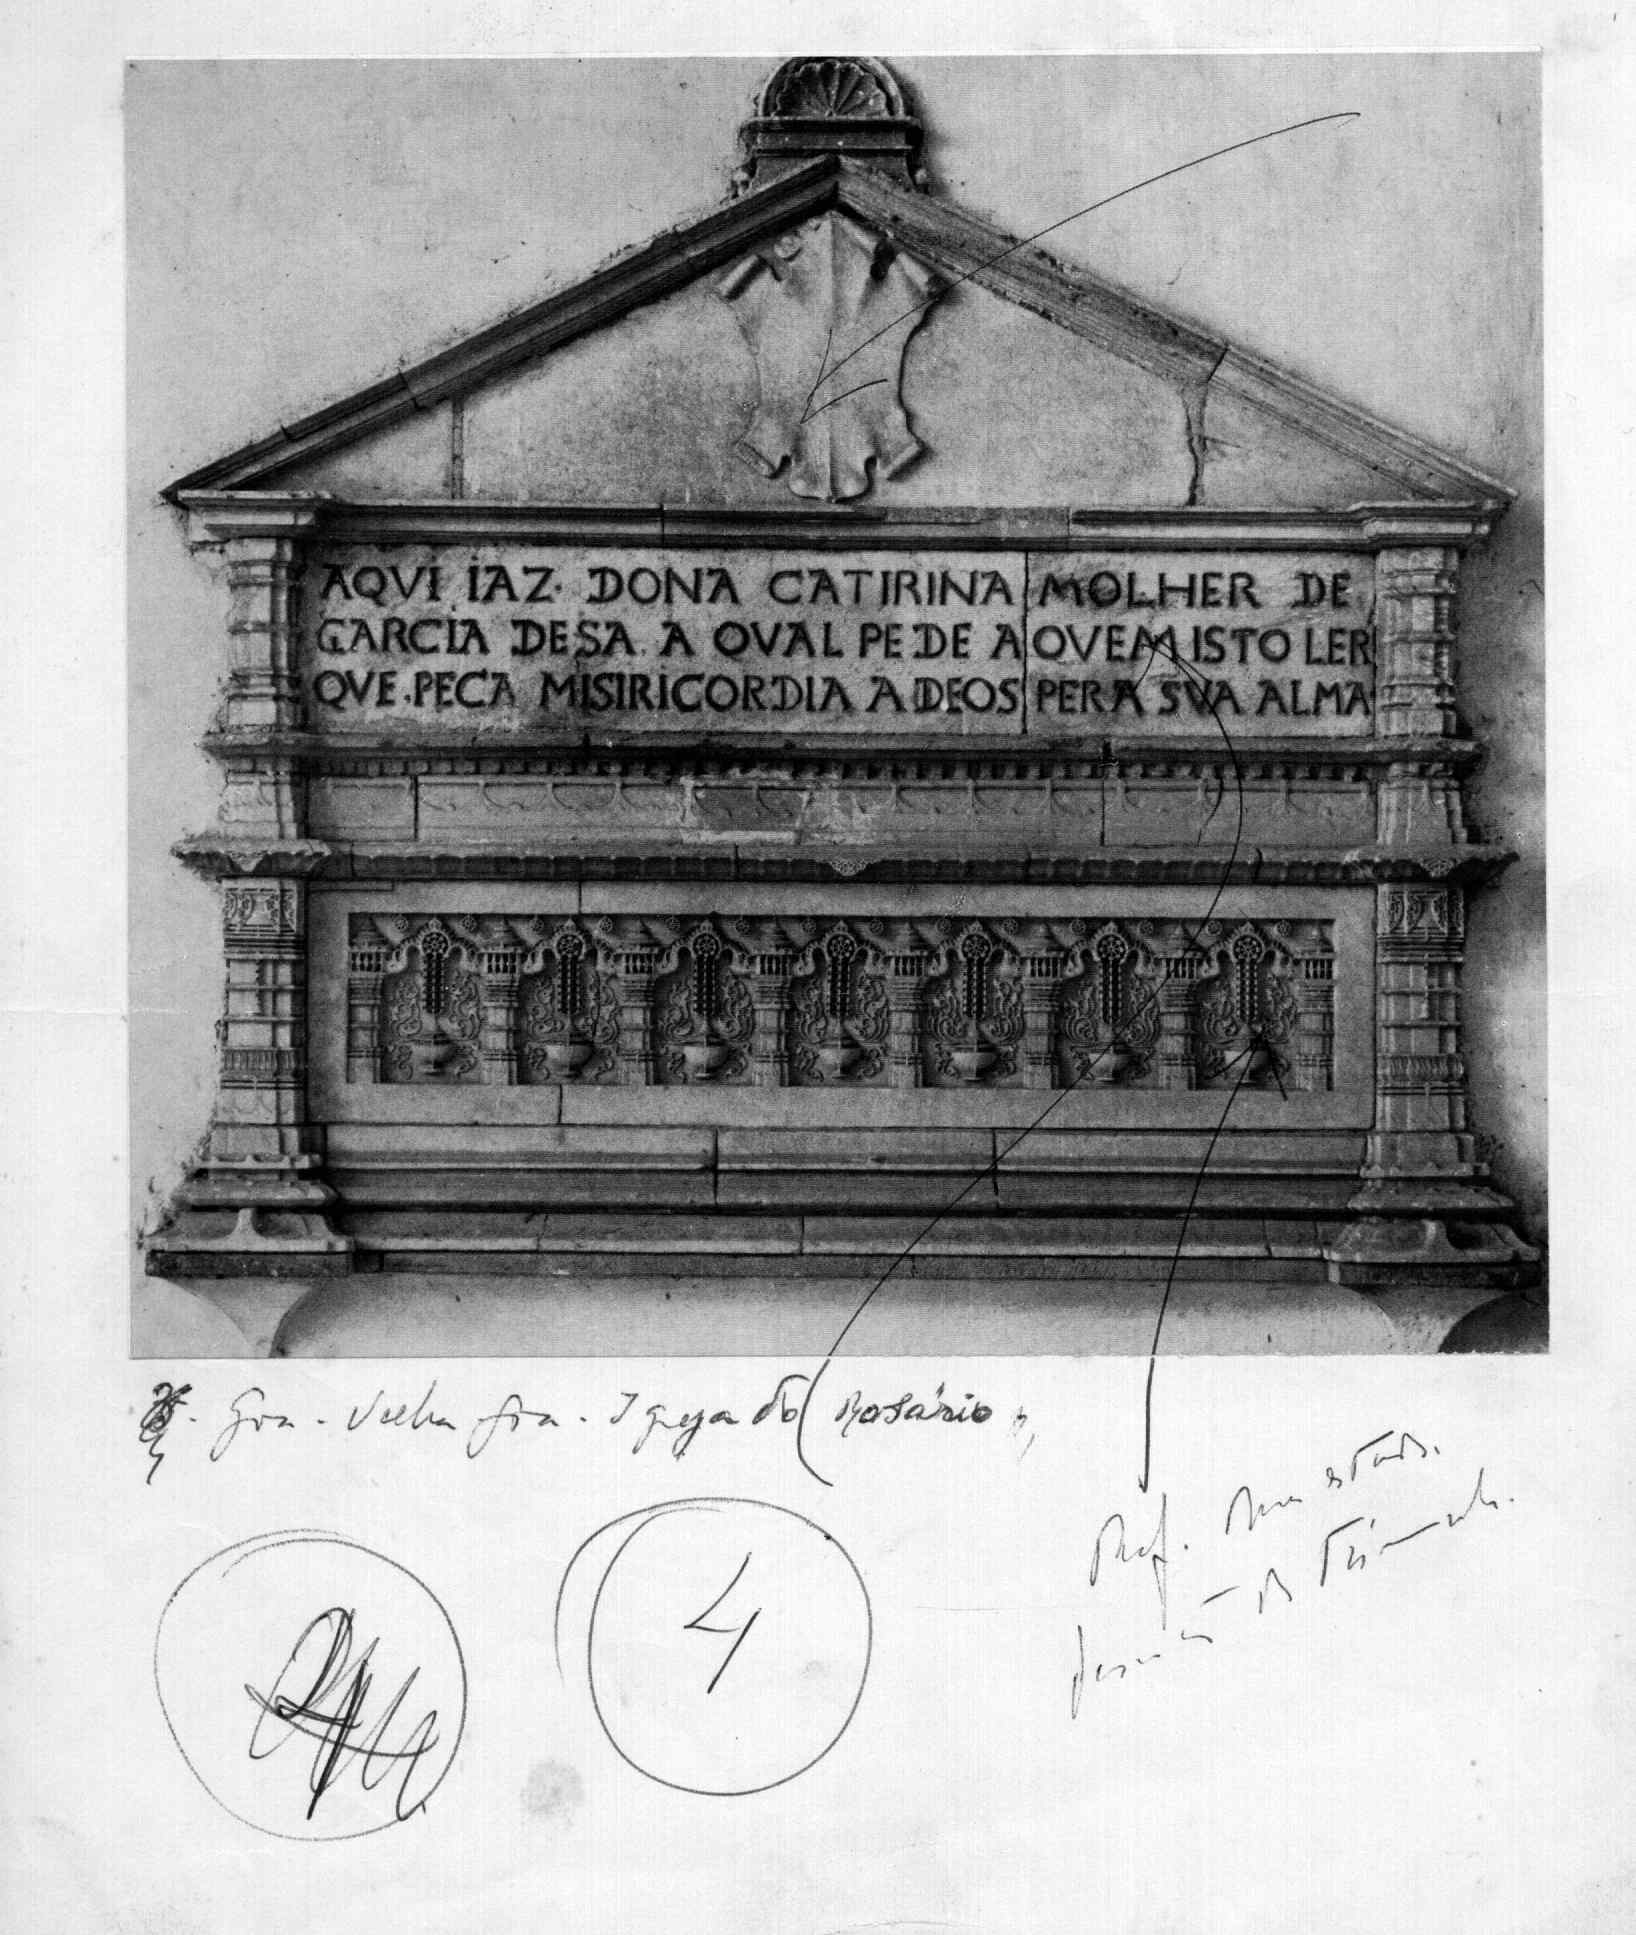 AQVI IAZ. DONA CATIRINA MOLHER DE
GARCIA DESA. A QVAL PEDE AQVEM ISTO LER
QVE.PECA MISIRICORDIA A DEOS PERA SVA ALMA
Goa - Velha Goa - Igreja do Rosário
4
Ref.